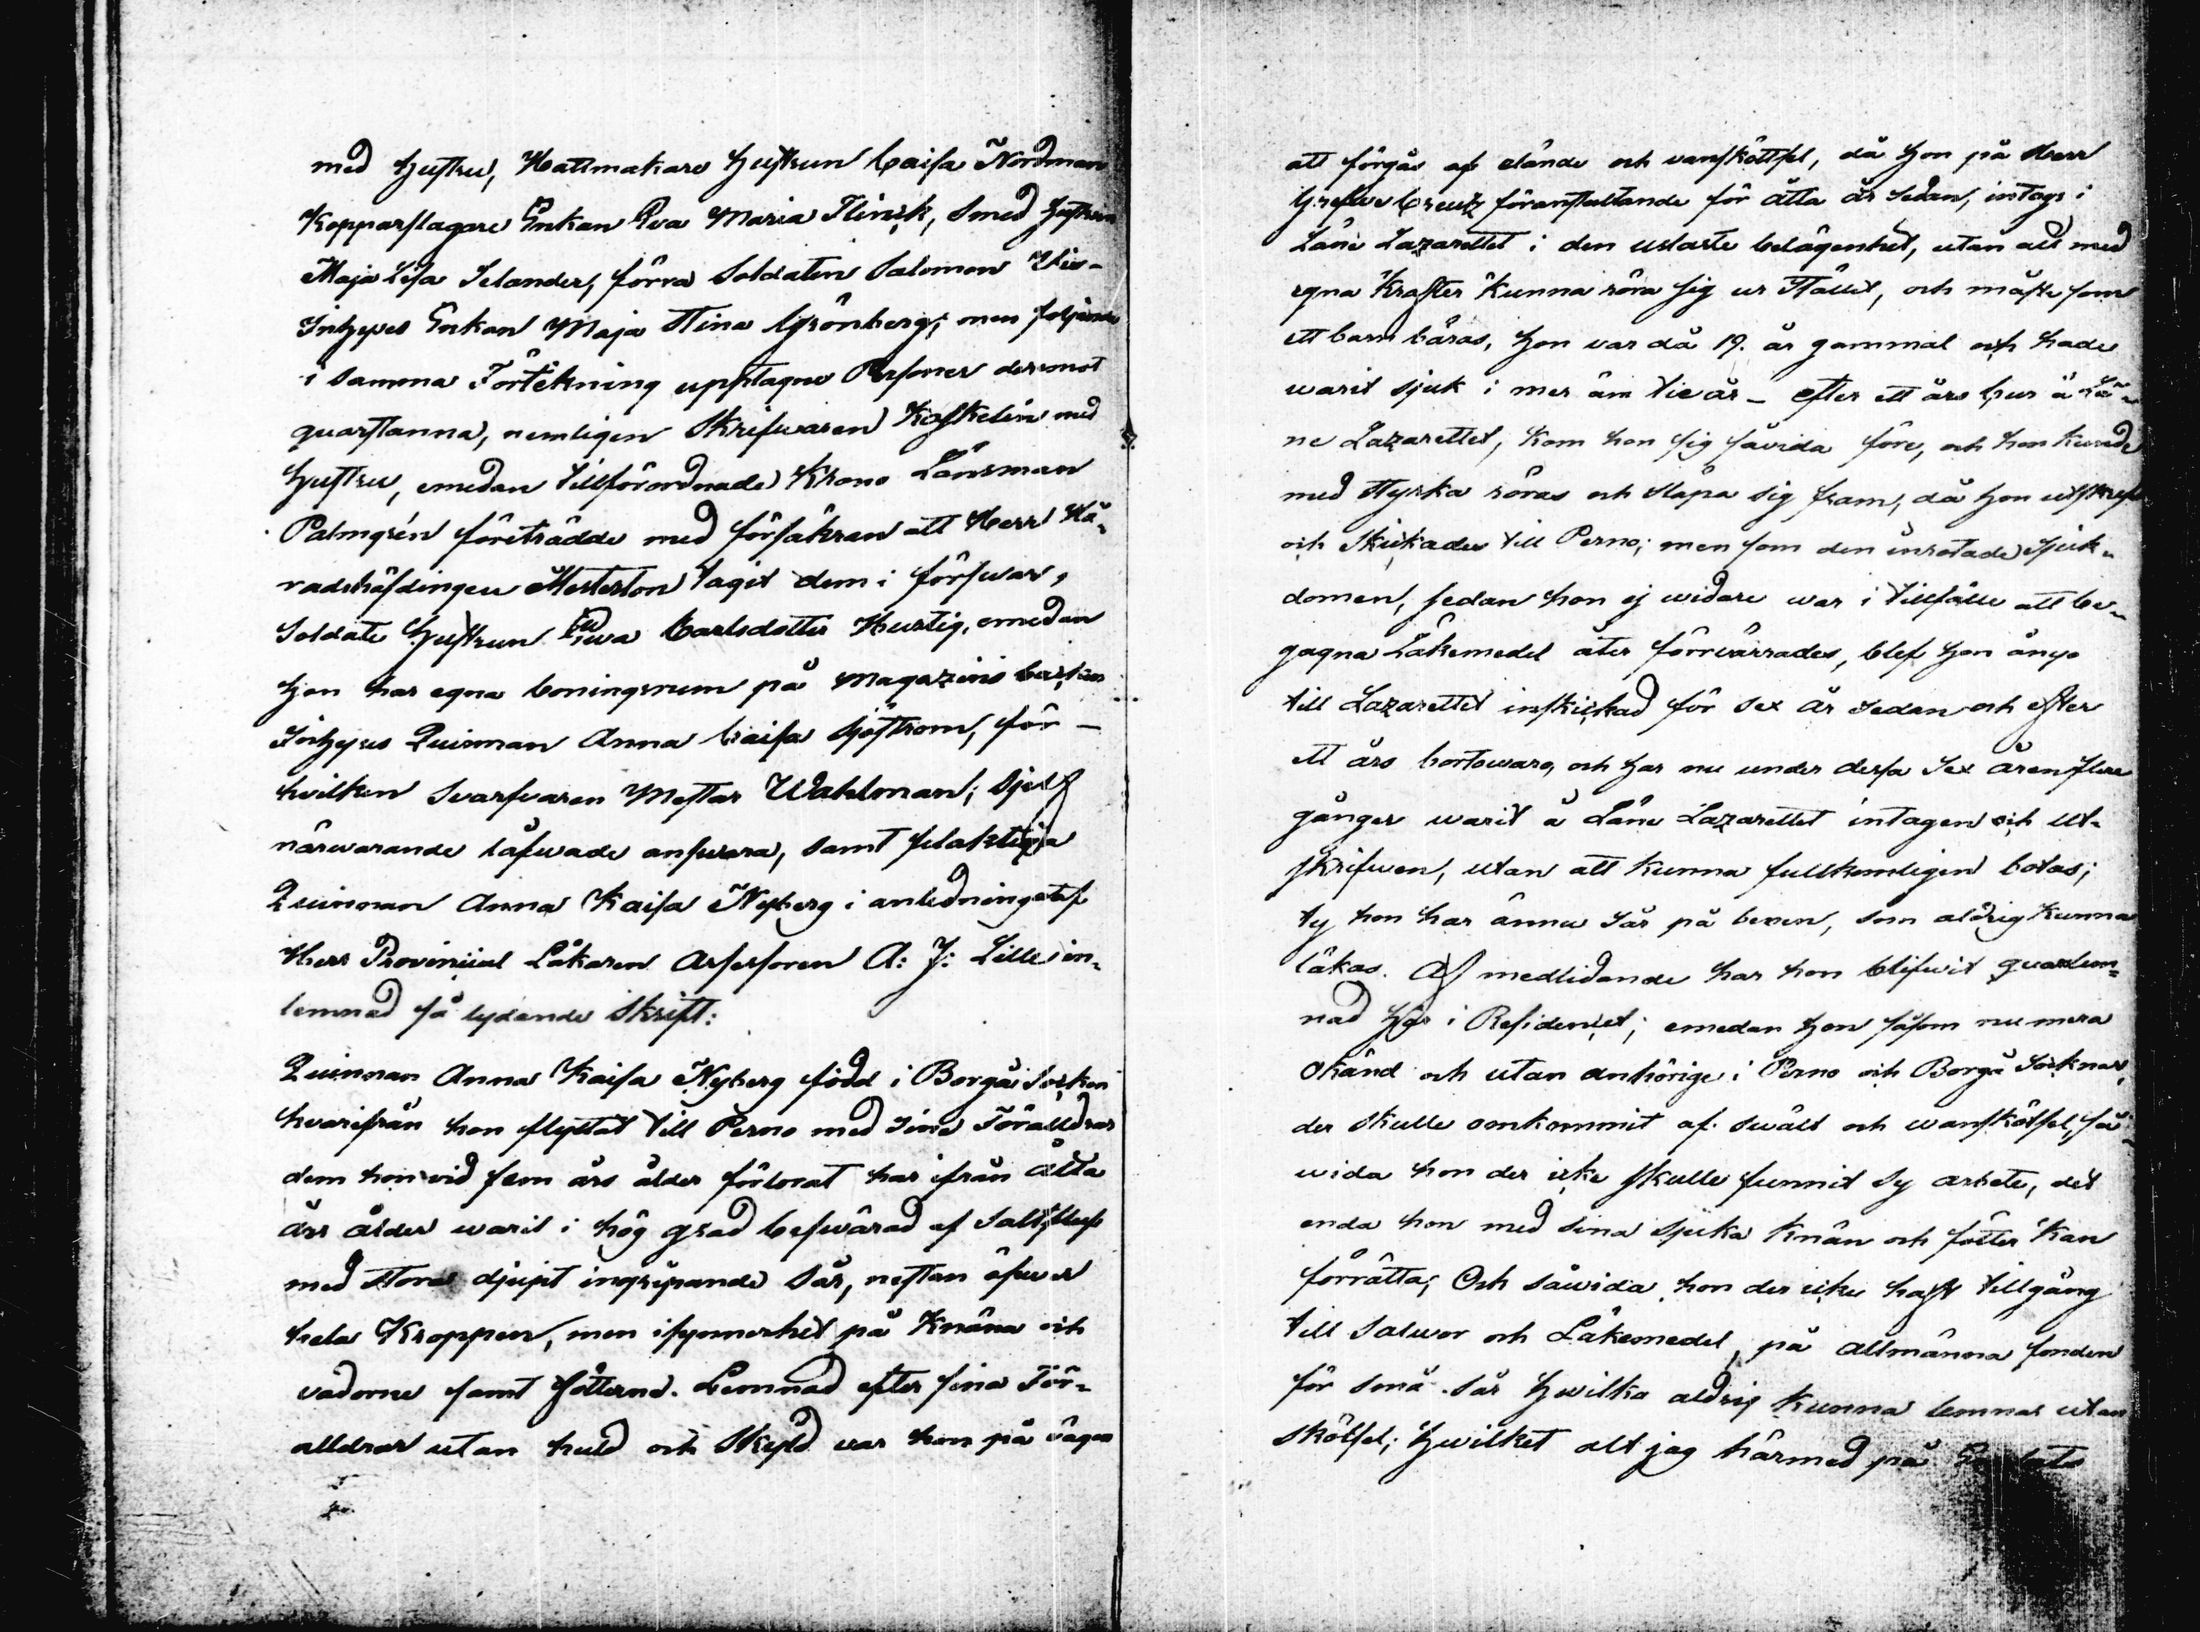 med hustru, Hattmakare hustrun Caisa Nordman
Kopparslagare Enkan Eva Maria Flinck, Smed hustrun
Maja Lisa Selander, förra Soldaten Salomon
Inhyses Enkan Maja Stina Grönberg; men följande
i samma Förtekning upptagne Personer deremot
quarstanna, nemligen Skrifwaren Koskelin med
hustru, emedan tillförordnade Krono Länsman
Palmgrén företrädde med försäkran att Herr Hä-
radshöfdingen Mesterton tagit dem i förswar,
Soldate hustrun Ewa Carlsdotter Hurtig, emedan
hon har egna boningsrum på Magazins backen
Inhyses Quinnan Anna Caisa Sjöstrom, för
hvilken Svarfvaren Mestar Wahlman, sjelf
närwarande låfwade answara, samt
Quinnan Anna Kaisa Nyberg i anledning utaf
Herr Provincial Läkaren Assessoren A: J: Lille in-
lemnad så lydande Skrift:
Quinnan Anna Kaisa Nyberg född i Borgå Socken
hvarifrån hon flyttat till Perno med sine Föräldrar
dem hon vid fem års ålder förlorat har ifrån åtta
års ålder warit i hög grad beswärad af Saltfluss
med stora djupt ingripande Sår, nestan öfwer
hela Kroppen, men isynnerhet på Knäna och
vadorne samt fötterne. Lemnad efter sina För-
älldrar utan huld och Skyld var hon på vägen
att förgås af elände och vanskötsel, då hon på Herr
Grefwe Creutz föranstaltande för åtta år sedan, intogs i
Läne Lazarettet i den uslaste belägenhet, utan att med
egna Krafter Kunna röra sig ur Stället, och måste som
ett barn bäras, hon var då 19. år gammal och hade
warit sjuk i mer än tie år – efter ett års Cur å Lä-
ne Lazarettet, kom hon sig såvida före, och hon kunde
med styrka röras och släpa sig fram, då hon utskrefs
och skickades till Perno; men som den inrotade sjuk-
domen, sedan hon ej widare war i tillfälle att be-
gagna Läkemedel åter förvärrades, blef hon ånyo
till Lazarettet inskickad för sex år sedan och efter
ett års bortowaro, och har nu under dessa Sex åren flere
gånger warit å Läne Lazarettet intagen och ut-
skrifven, utan att Kunna fullkomligen botas;
ty hon har ännu Sår på benen, som aldrig Kunna
läkas. Af medlidande har hon blifwit quarlem-
nad här i Residencet; emedan hon såsom nu mera
okänd och utan anhörige i Perno och Borgå Socknar,
der skulle omkommit af swält och wanskötsel, så-
wida hon der icke skulle funnit Sy arbete, det
enda hon med sina sjuka Knän och fötter Kan
förrätta; Och såwida hon der icke haft tillgång
till Salwor och Läkemedel på allmänna fonden
för små sår hwilka aldrig Kunna lemnas utan
skötsel; hwilket alt jag härmed på